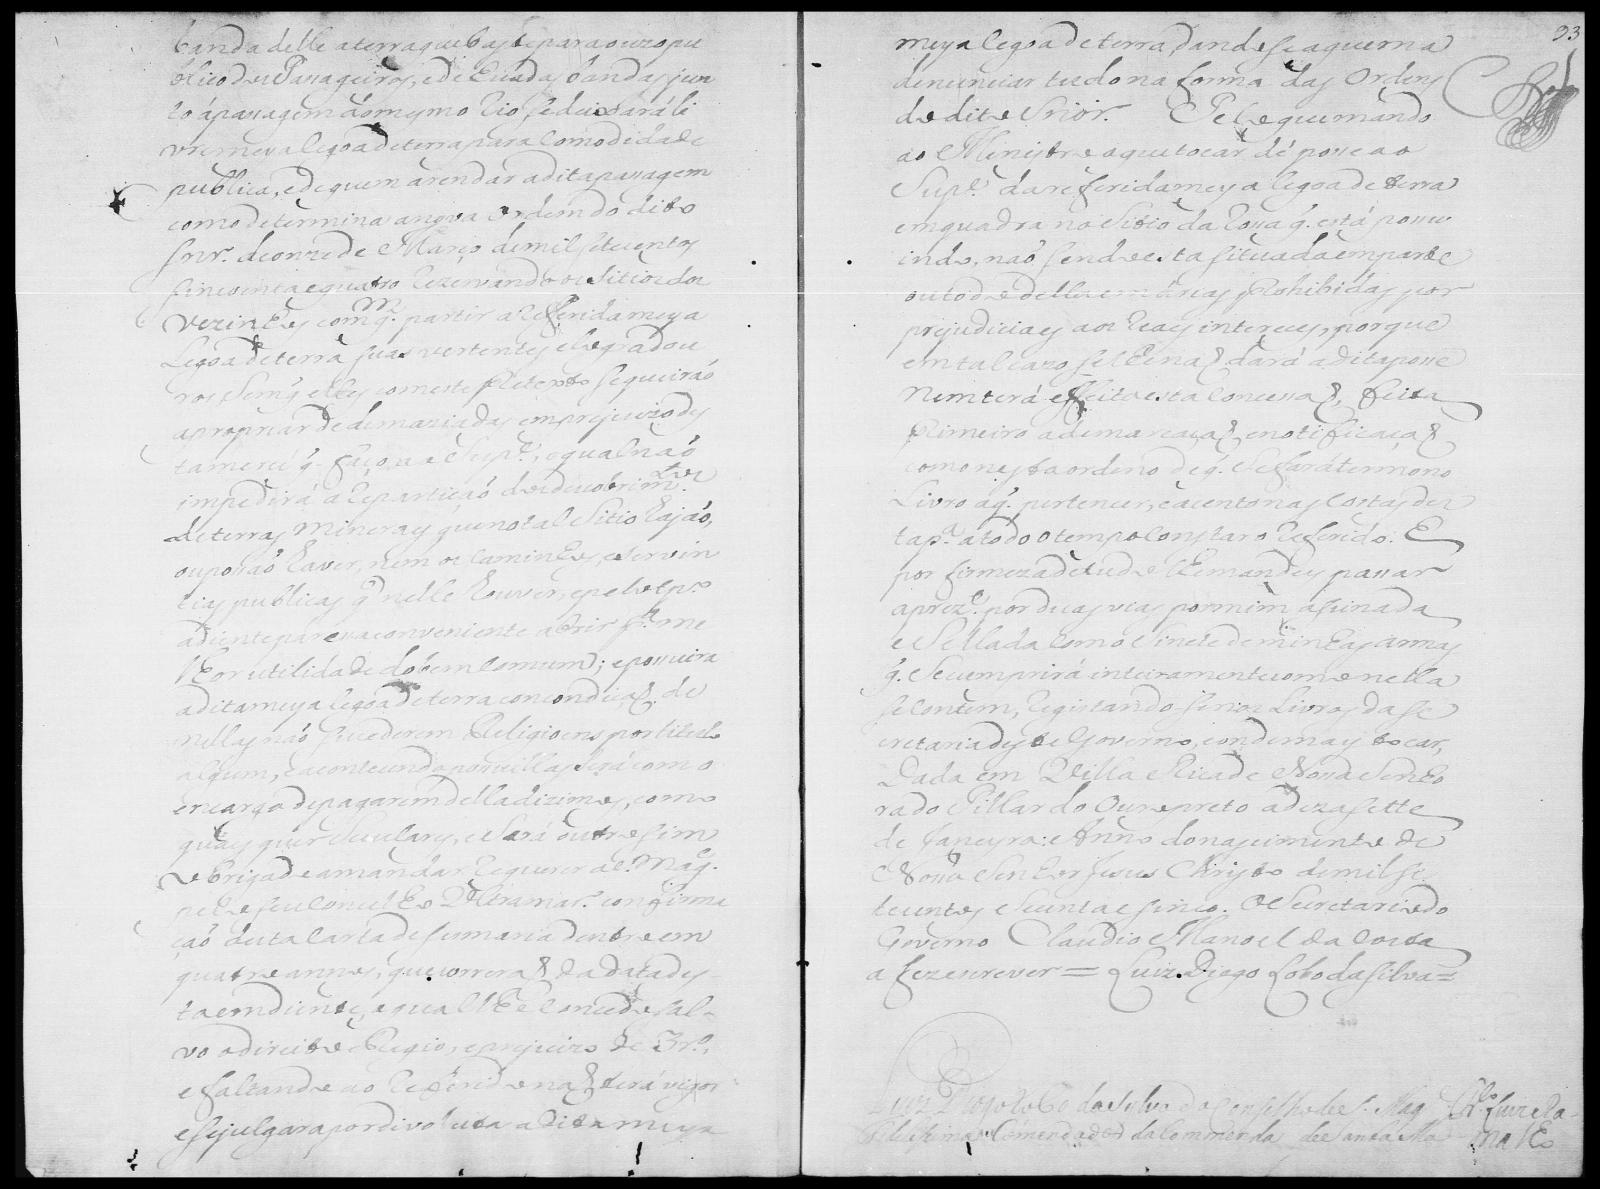 banda delle a terra que baste para o uzo pu
blico dos Passageiros, e de huã das bandas jun
to á passagem do mesmo Rio se deixará li
vre meya legoa de terra para comodidade
publica, e de quem arendar a dita passagem
como determina a nova ordem do dito
Snr. de onze de Março de mil setecentos
sincoenta e quatro Rezervando os sitios dos
vezinhos com q.m partir a Referida meya
Legoa de terra suas vertentes e Logradou
ros sem q' elles com este pretexto se queirão
apropriar de demaziadas em prejuizo des
ta merce q' faço ao Sup.e, o qual não
impedirá a Repartição dos descobrim.tos
de terras Mineraes que no tal Sitio hajão,
ou possão haver, nem os caminhos, e servin
tias publicas q' nelle houver, e pelo tp.o
adiente pareça conveniente abrir p.a me
lhor utilidade do bem comum; e possuira
a dita meya legoa de terra com condição de
nellas não sucederem Religioens por titulo
algum, e acontecendo possuillas será com o
encargo de pagarem della dizimos, como
quaes quer Seculares, e será outro sim
obrigado a mandar Requerer a S. Mag.e
pelo seu Concelho Ultramar.o confirma
ção desta Carta de sismaria dentro em
quatro annos, que correrão da data des
ta em diente, a qual lhe concedo sal-
vo o direito Regio, e prejuizo de 3.ro,
e faltando ao Referido não terá vigor
e se julgara por devoluta a dita meya
93
meya legoa de terra, dandose a quem a
denunciar tudo na forma das Ordens
do dito Snior. Pelo que mando
ao Ministro a que tocar dé posse ao
Sup.e da referida meya legoa de terra
em quadra no Sitio da Rossa q' está possu
indo, não sendo esta situada em parte
ou todo della em áreas prohibidas por
prejudiciaes aos Reaes interces, porque
em tal cazo se lhe não dará a dita posse
Nem terá effeito esta Concessão, feita
primeiro a demarcação, e notificação
como nesta ordeno de q' se fará termo no
Livro a q' pertencer, e acento nas Costas des
ta p.a a todo o tempo Constar o Referido. E
por firmeza de tudo lhe mandey passar
a prez.e por duas vias por mim asinada
e Sellada com o Sinete de minhas armas
q' se cumprirá inteiramente como nella
se contem, Registando se nos Livros da Se
cretaria deste Governo, e onde mais tocar,
Dada em Villa Rica de Nossa Senho
ra do Pillar do Ouro preto a dezasette
de Janeyro: Anno do nascimento de
Nosso Senhor Jesus Christo de mil se
tecentos e secenta e sinco. O Secretario do
Governo Claudio Manoel da Costa
a fez escrever = Luiz Diogo Lobo da Silva =
Luiz Diogo Lobo da Silva do Conselho de S. Mag.
Fidelissima Comendador da Commenda de Santa Ma